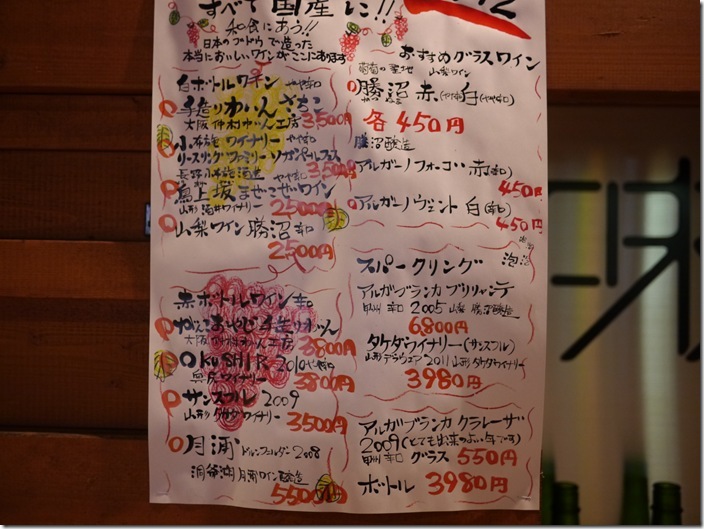 すべて国産に!!
和食にあう!!
日本のブドウで造った
本当においしいワインがここにあります
白ボトルワイン やや辛口
手造りわいん さちこ
大阪 仲村わいん工房 3,500円
小布施ワイナリー やや辛口
リースリング・ファミリー・ソガペールフィス
長野 小布施酒造 3,500円
鳥上坂 まぜこぜワイン
山形 酒井ワイナリー 2500円
山梨ワイン 勝沼 辛口
2500円
赤ボトルワイン 辛口
がんこおやじ手造りわいん
大阪 仲村わいん工房 3800円
OKUSHIR 2010 やや辛口
奥尻ワイナリー 3800円
サンスフル 2009
山形 タケダワイナリー 3500円
月浦 ドルンフェルダー 2008
洞爺湖 月浦ワイン醸造
5500円
おすすめグラスワイン
葡萄の産地 山梨ワイン
勝沼 赤(やや辛口) 白(やや辛口)
各450円
勝沼醸造
アルガーノフォーゴ 赤(辛口)
450円
アルガーノヴェント 白(辛口)
450円
スパークリング 泡泡
アルガブランカ ブリリャンテ
甲州 辛口 2005 山梨 勝沼醸造
6,800円
タケダワイナリー(サンスフル)
山形デラウエア 2011 山形 タケダワイナリー
3980円
アルガブランカ クラレーザ
2009(とても出来のよい年です)
甲州 辛口 グラス 550円
ボトル 3980円